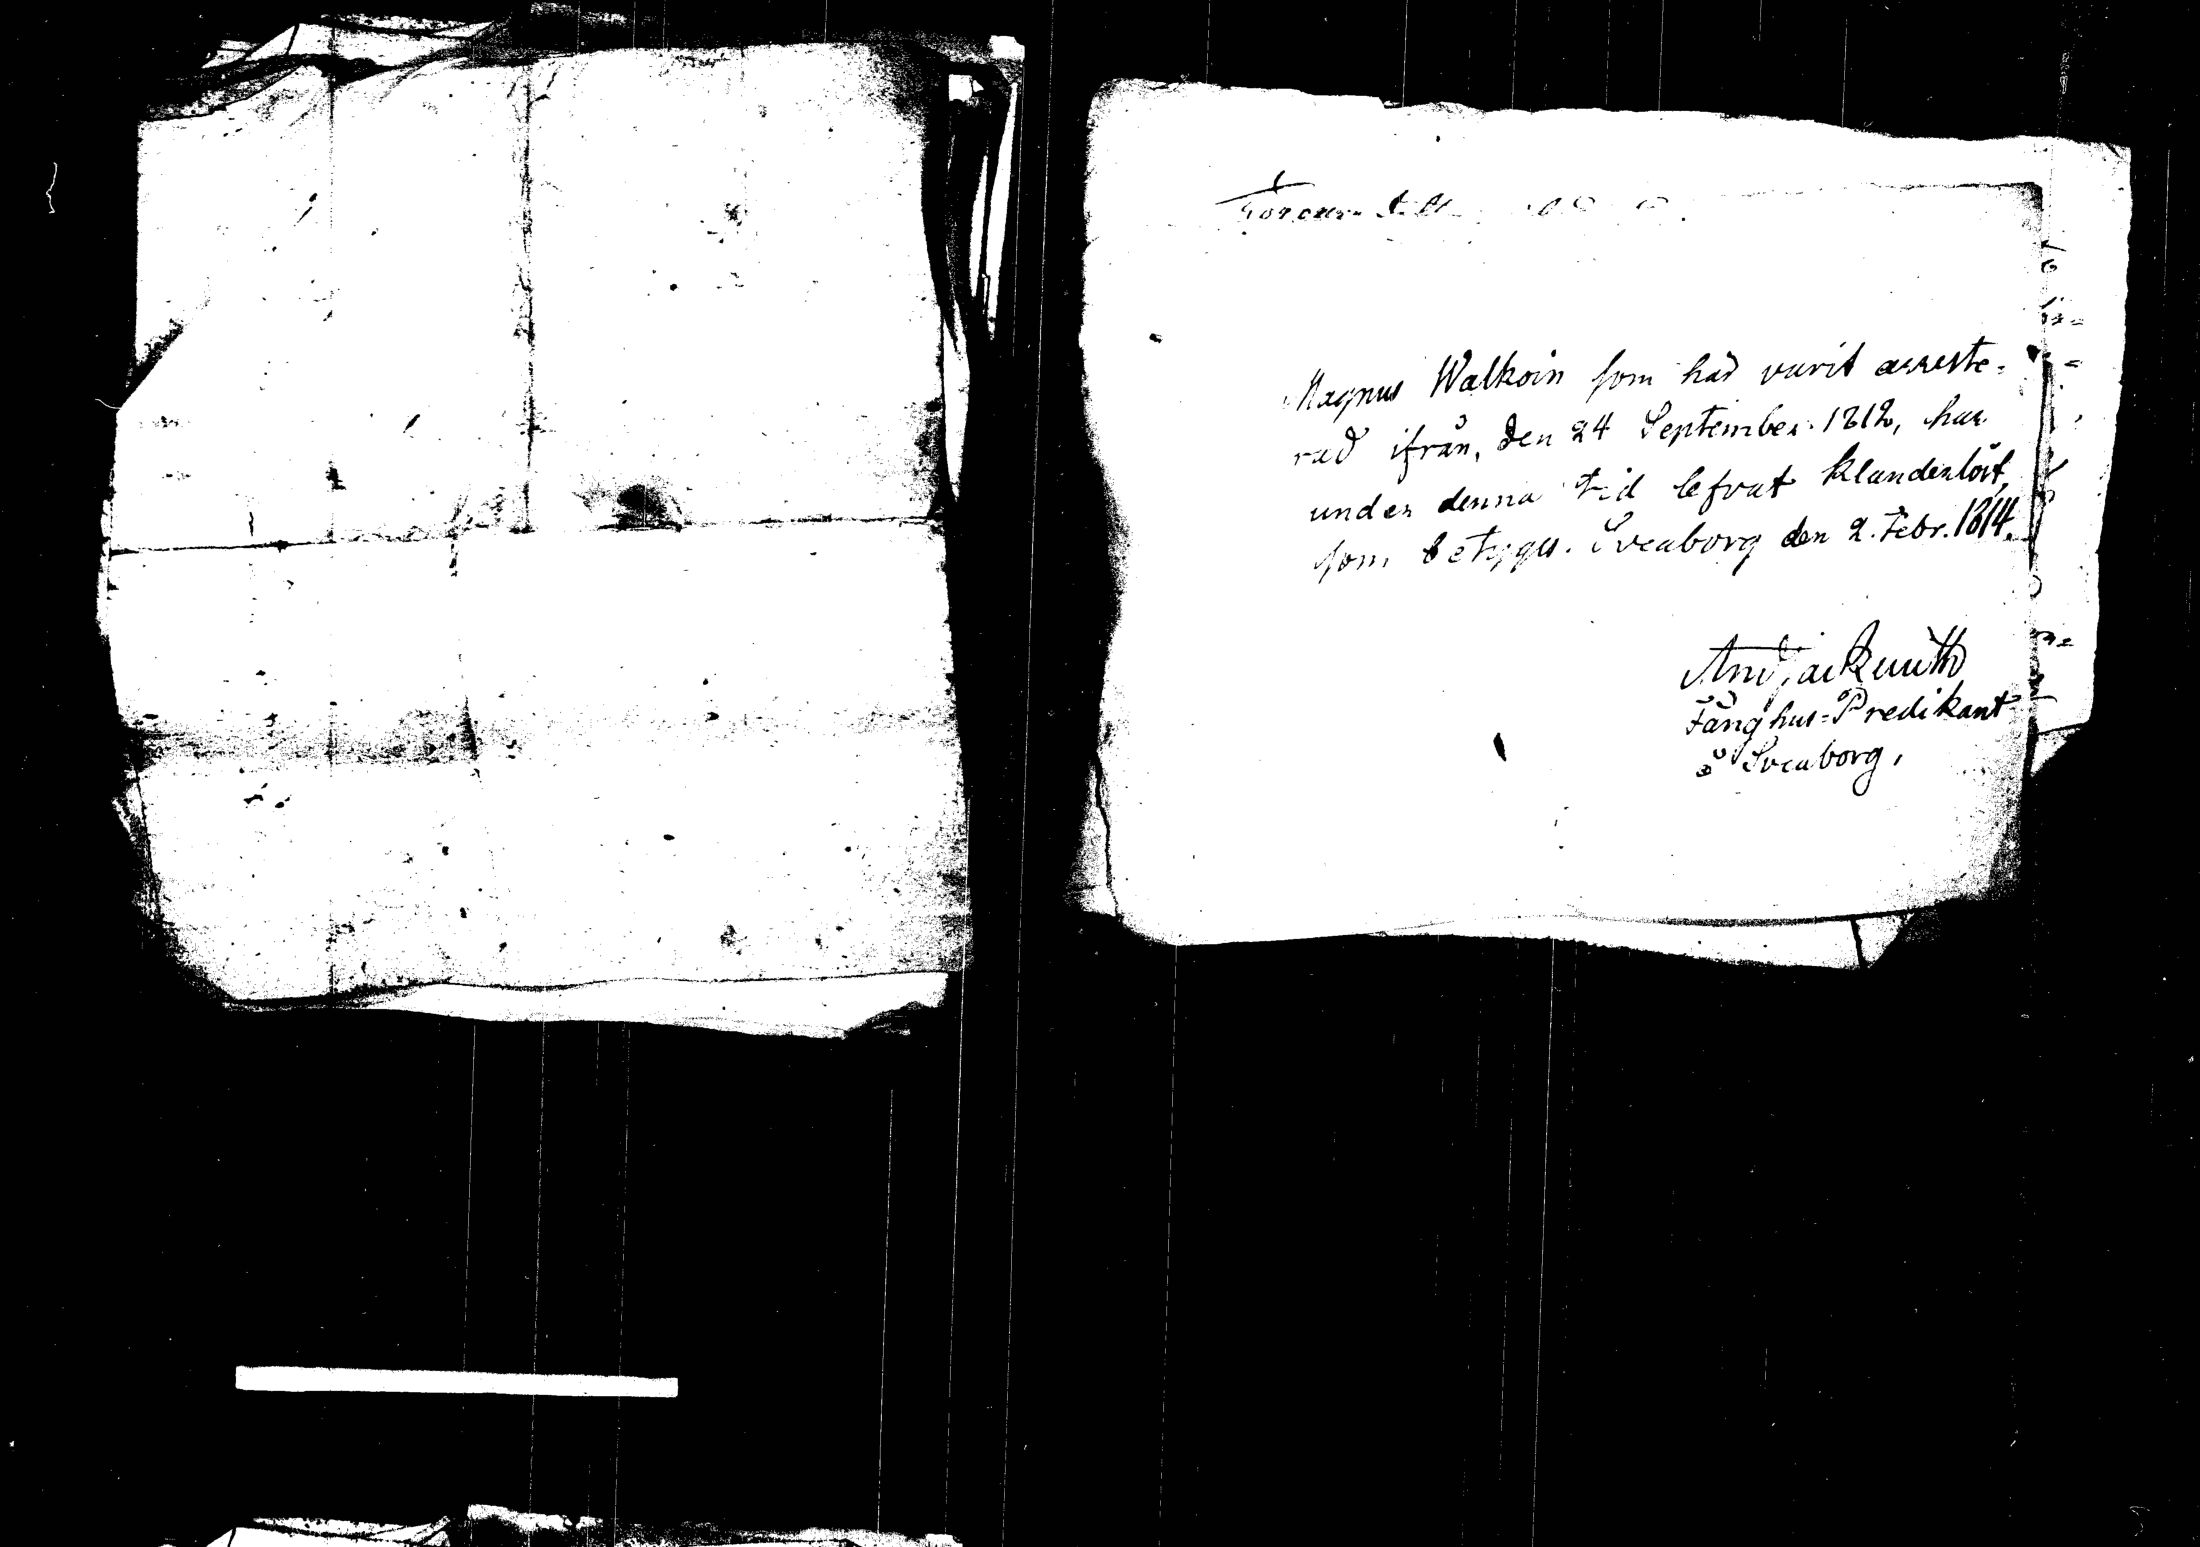 Magnus Walkoin som häd varit arreste=
rad ifrån, den 24 September 1812, har
under denna tid lefvat klanderlöst,
som betygas. Sveaborg den 2. Febr. 1814.
Fånghus=Predikant
å Sveaborg.